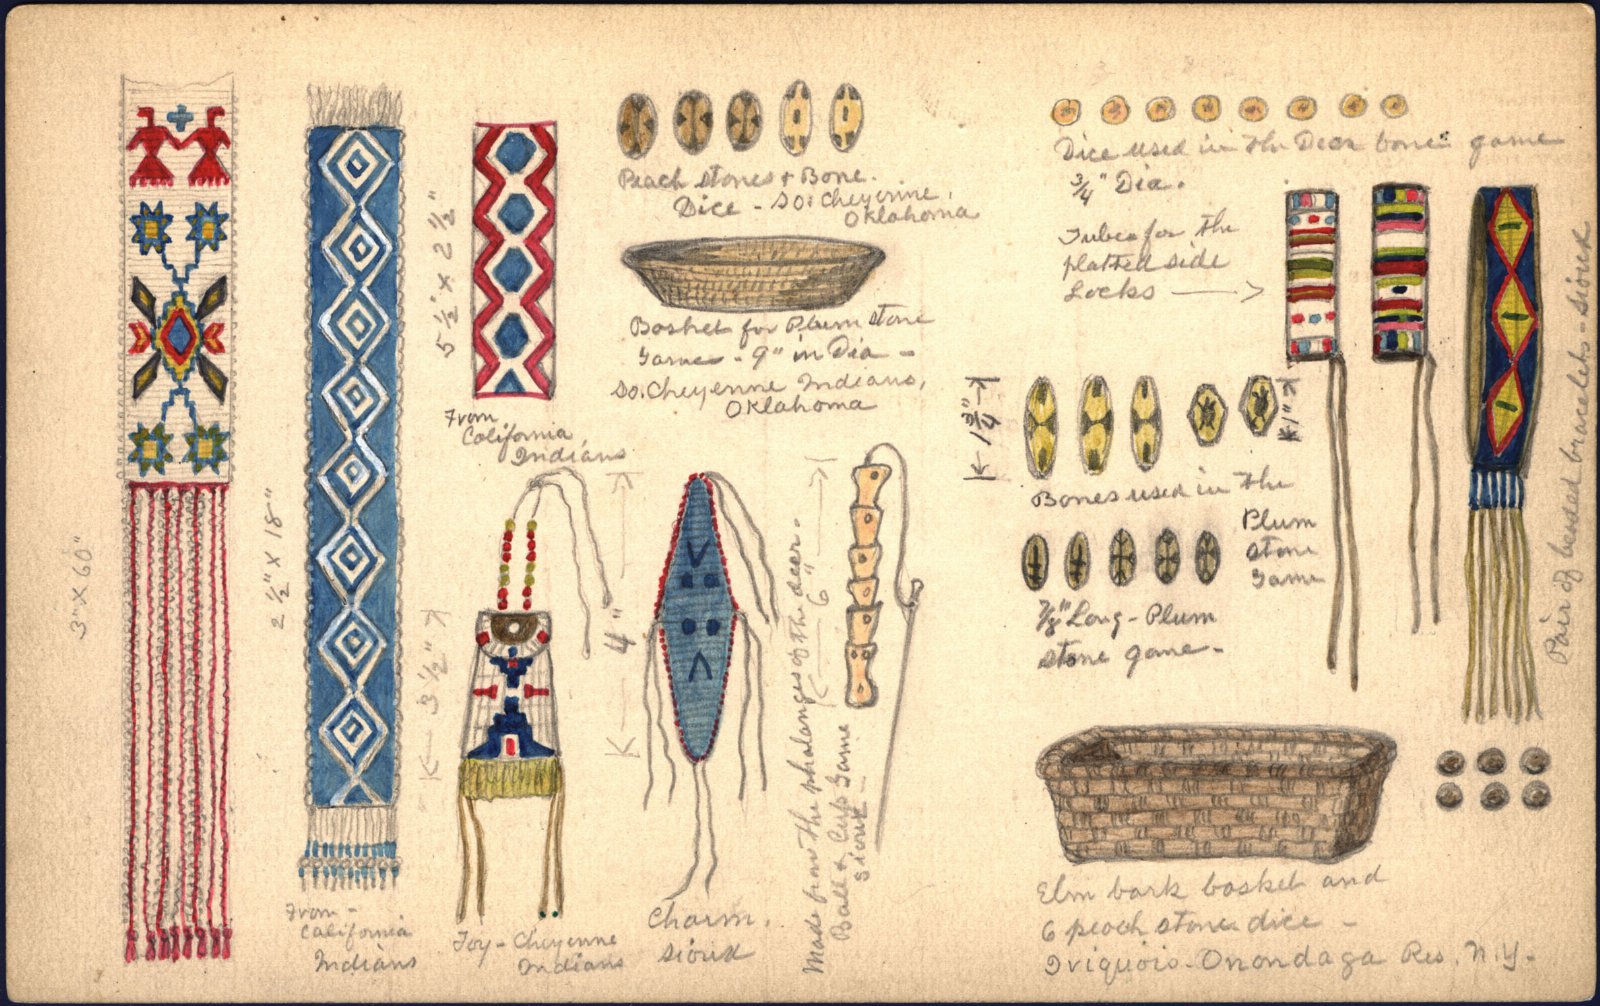 3" x 60"
2 ½" x 18"
From -
California
Indians
5 ½" x 2 ½"
From
California
Indians
3 ½"
Toy - Cheyenne
Indians
Peach stones & Bone.
Dice - So. Cheyenne,
Oklahoma
Basket for Plum stone
Game - 9" in Dia -
So. Cheyenne Indians,
Oklahoma
4"
Charm.
Sioux
6"
Made from the phalanges of the deer.
Ball & Cup Game
Sioux -
Dice used in the Deer bone" game
¾" Dia.
Tubes for the
platted side
Locks
1 ¾"
1"
Bones used in the
Plum
stone
Game
⅞" Long - Plum
stone game -
Pair of beaded bracelets - Sioux
Elm bark basket and
6 peach stone dice -
Iriquois - Onondaga Res. N.Y.